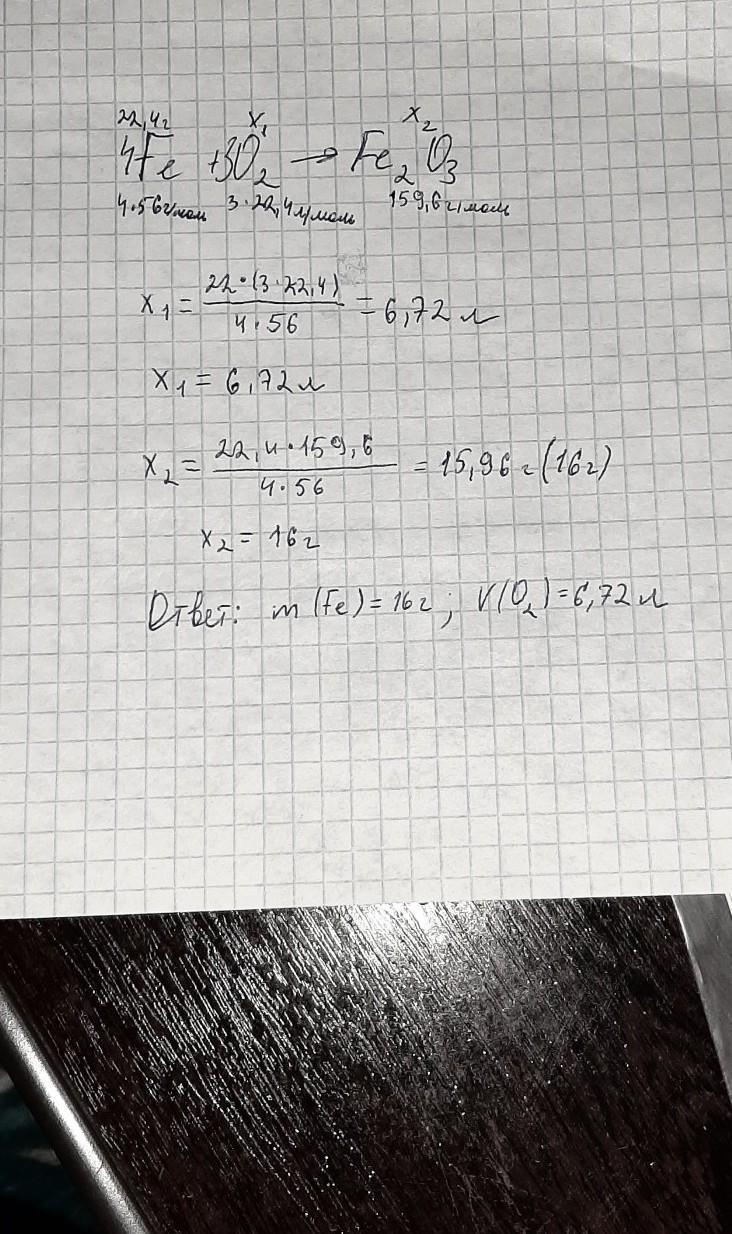 22,4г x₁ x₂
4Fe + 3O₂ → Fe₂O₃
4·56г/моль 3·22,4л/моль 159,6г/моль
x₁ = 22·(3·22,4) / 4·56 = 6,72 л
x₁ = 6,72 л
x₂ = 22,4·159,6 / 4·56 = 15,96 г (16г)
x₂ = 16г
Ответ: m(Fe) = 16г; V(O₂) = 6,72 л